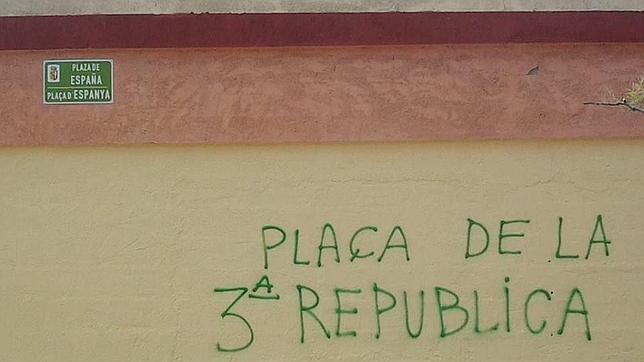 PLAZA DE
ESPAÑA
PLAÇA D'ESPANYA
PLAÇA DE LA
3ª REPUBLiCA